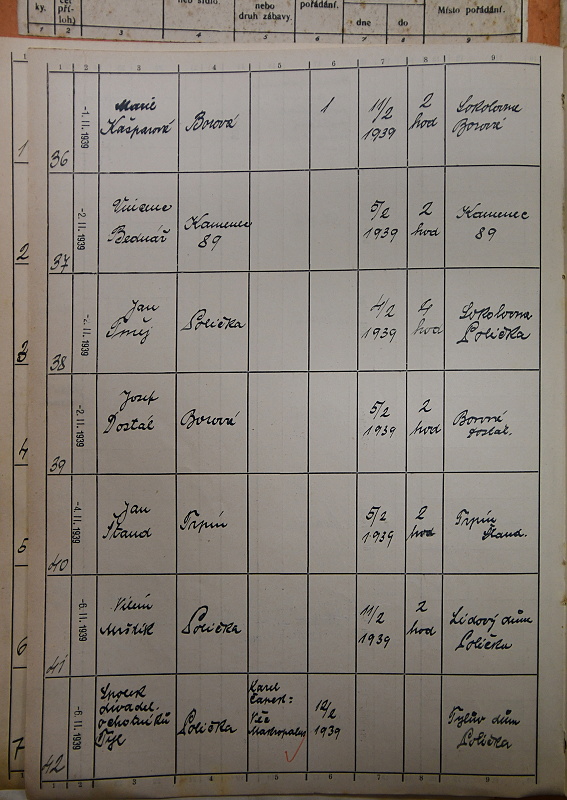 ky.
pří-
loh)
nebo
druh zábavy.
pořádání.
dne
do
Místo pořádání.
1 2 3 4 5 6 7 8 9
1 2 3 4 5 6 7 8 9
36
-1. II. 1939
Marie
Kašparová
Borová
1
11/2
1939
2
hod
Sokolovna
Borová
37
-2. II. 1939
Vincenc
Bednář
Kamenec
89
5/2
1939
2
hod
Kamenec
89
38
-2. II. 1939
Jan
Polička
4/2
1939
4
hod
Sokolovna
Polička
39
-2. II. 1939
Josef
Dostál
Borová
5/2
1939
2
hod
Borová
Dostál.
40
-4. II. 1939
Jan
Štaud
Trpín
5/2
1939
2
hod
Trpín
Štaud.
41
-6. II. 1939
Vilém
Mrštík
Polička
11/2
1939
2
hod
Lidový dům
Polička
42
-6. II. 1939
Spolek
divadel.
ochotníků
Tyl
Polička
Karel
Čapek:
Věc
Makropulos
12/2
1939
Tylův dům
Polička
1 2 3 4 5 6 7 8 9
1
2
3
4
5
6
7